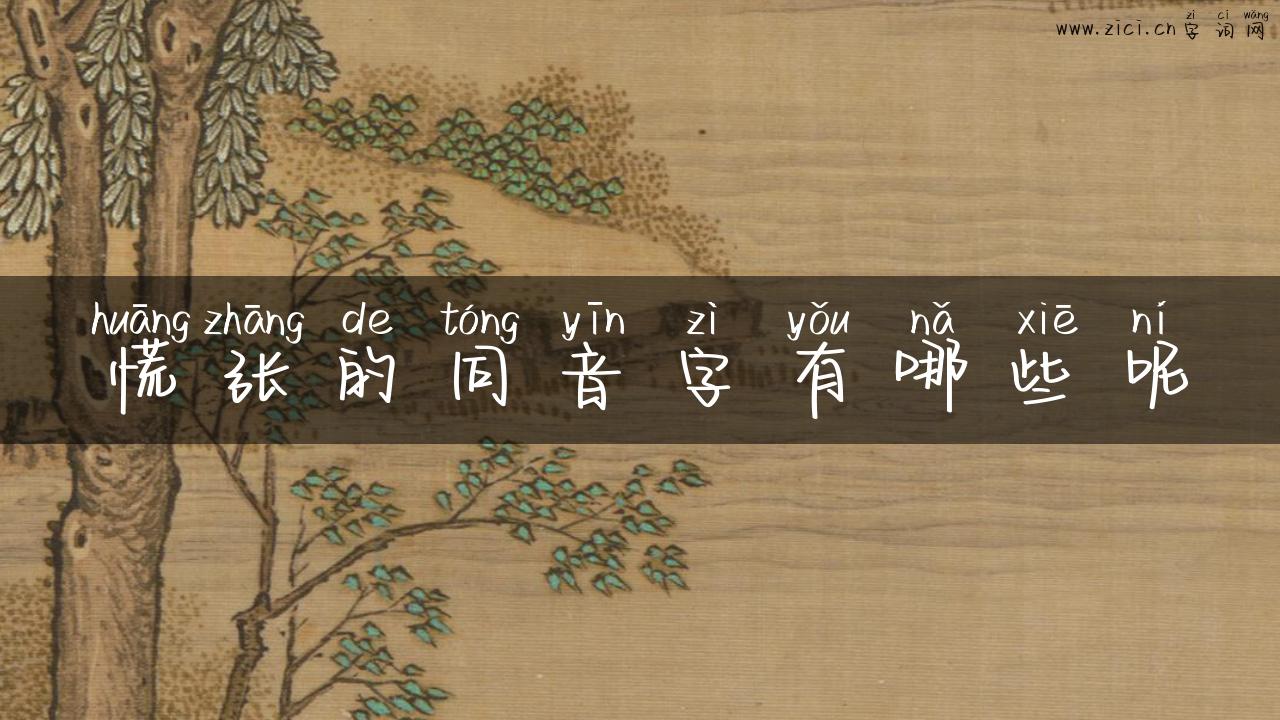 zì cí wǎng
www.zici.cn 字词网
huāng zhāng de tóng yīn zì yǒu nǎ xiē ní
慌张的同音字有哪些呢